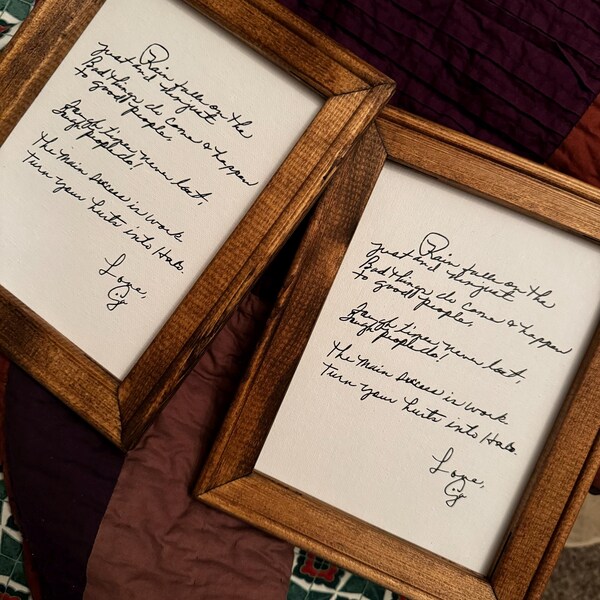 Rain falls on the
just and Unjust
Bad things do come & happen
to good people.
Tough times never last,
Tough people do!
The main success is work
Turn your hurts into Halos.
Love,
Rain falls on the
just and Unjust
Bad things do come & happen
to good people.
Tough times never last,
Tough people do!
The main success is work
Turn your hurts into Halos.
Love,